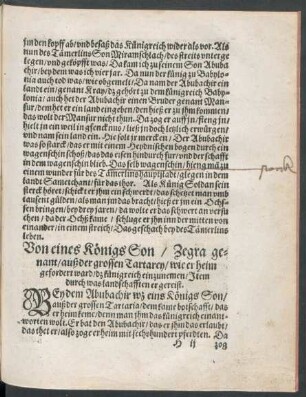 jm den kopff ab/ vnd besaß das Künigreich wider als vor. Als
nun des Tämerlins Son Miramschlach/ des streits vnterge
legen/ vnd geköpfft was/ Da kam ich zu seinem Son Abuba
chir/ bey dem was ich vier jar. Da nun der künig zu Babylo
nia auch tod was/ wie obgemelt/ Da nam der Abubachir ein
landt ein/ genant Kray/ dz gehört zu dem künigreich Baby
lonia/ auch het der Abubachir einen Bruder genant Man
sur/ dem het er ein land eingeben/ den hieß er zu jhm kommen/
das wolt der Mansur nicht thun. Da zog er auff jn/ fieng jn/
hielt jn ein weil in gfencknus/ ließ jn doch leylich erwürgen/
vnd nam sein land ein. Hie solt jr mercken/ Der Abubachir
was so starck/ das er mit einem Heydnischen bogen durch ein
wagenschin schoß/ das das eisen hindurch fur/ vnd der schafft
in dem wagenschin blieb. Das selb wagenschin/ hieng man zu
einem wunder für des Tämerlins hauptstat/ glegen in dem
landt Samerchant für das thor. Als Künig Soldan sein
sterck höret/ schicket er jhm ein schwerdt/ das schetzet man vmb
tausent gülden/ als man jm das bracht/ hieß er jm ein Och
sen bringen/ bey drey jaren/ da wolt er das schwert an versu
chen/ da der Ochs kame/ schluge er jhn inn der mitten von
einander/ in einem streich. Das geschach bey des Tämerlins
leben.
Von eines Königs Son / Zegra ge
nant/ außder grossen Tartarey/ wie er heim
gefordert ward/ dz künigreich einzunemen/ Item
durch was landschafften er gereist.
BEy dem Abubachir wz eins Königs Son/
außder grossen Tartaria/ dem kame botschafft/ das
er heim keme/ denn man jhm das künigreich einant
worten wolt. Er bat den Abubachir/ das er jhn das erlaubt/
das thet er/ also zog er heim mit sechshundert pferdten. Da
H ij zog